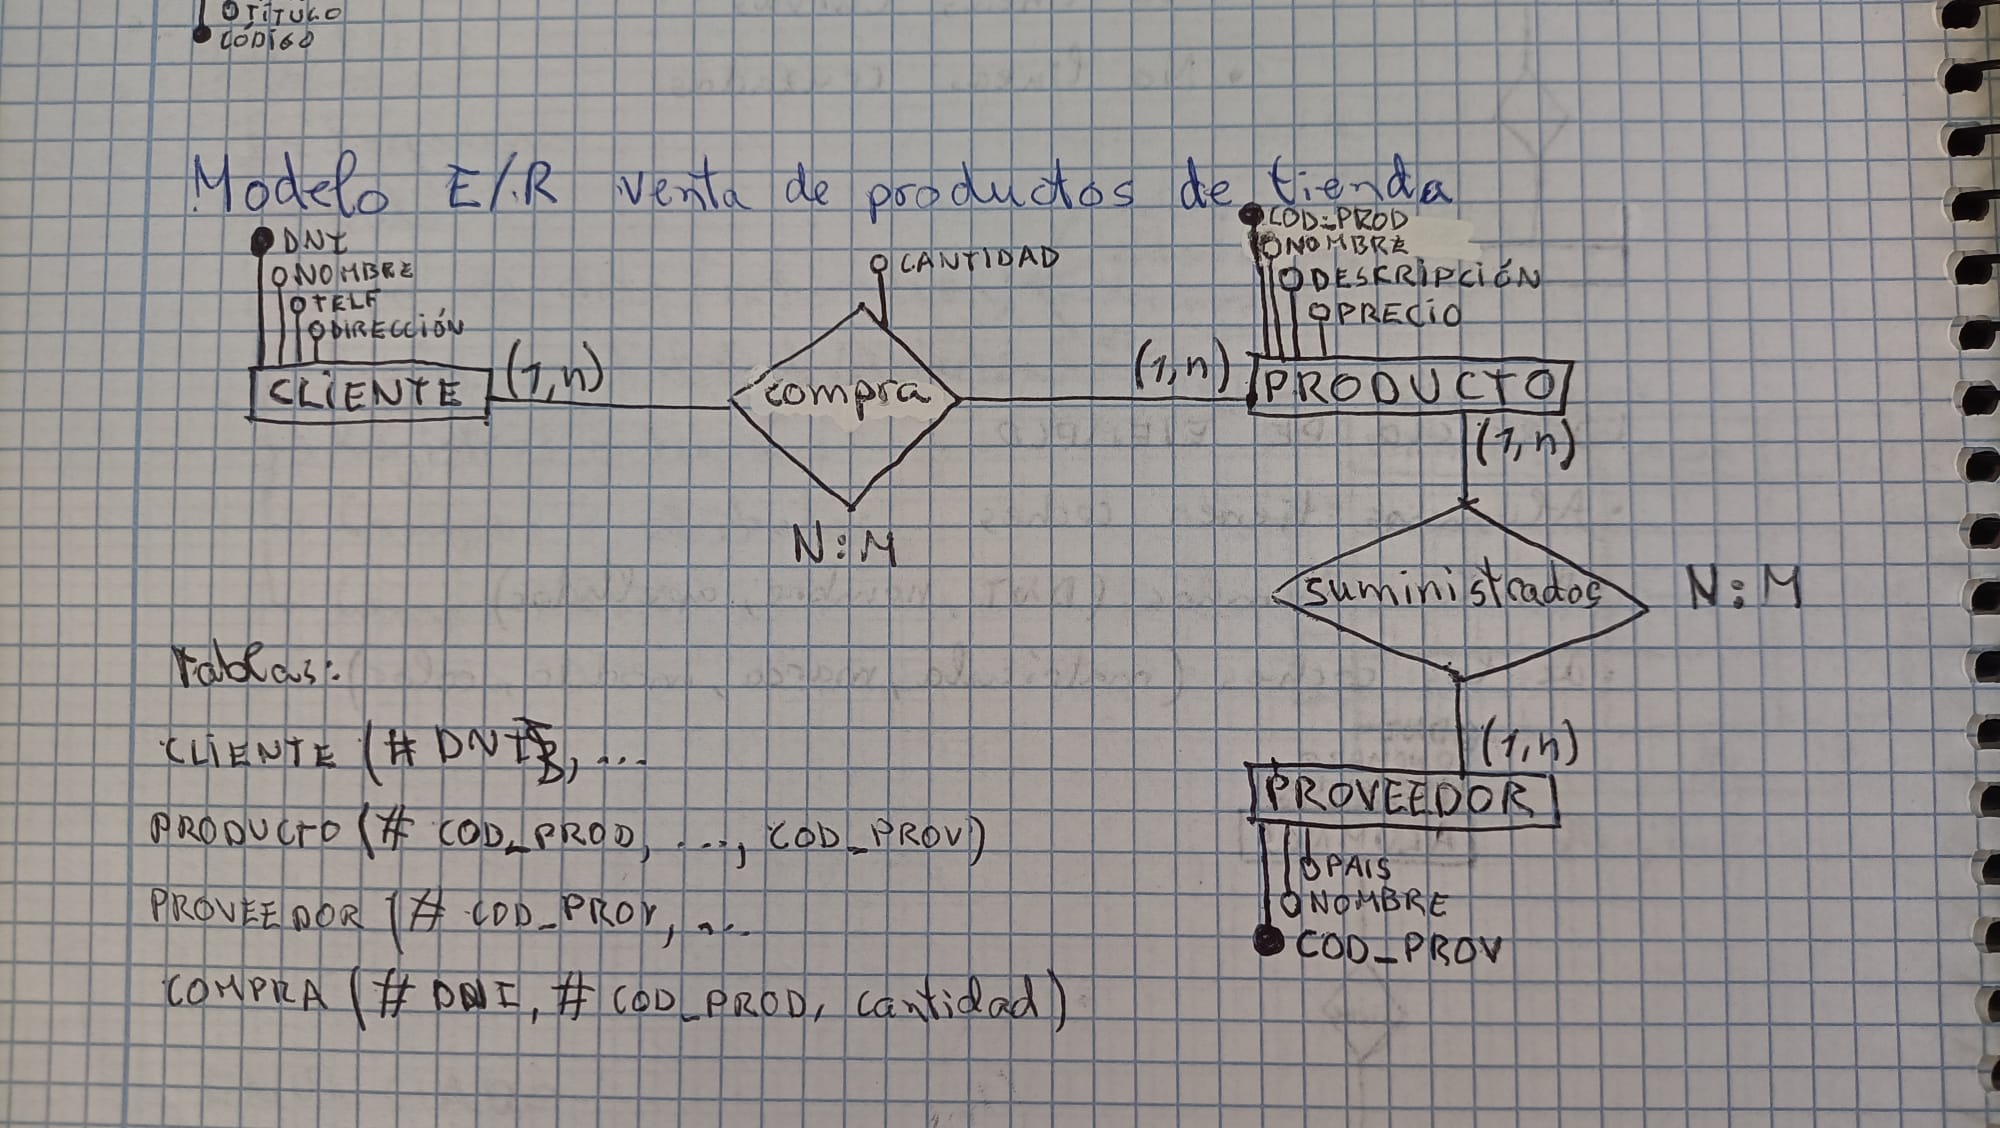 TÍTULO
CÓDIGO
Modelo E/R venta de productos de tienda
DNI
NOMBRE
TELF
DIRECCIÓN
CLIENTE
(1,n)
CANTIDAD
compra
N:M
(1,n)
COD_PROD
NOMBRE
DESKRIPCIÓN
PRECIO
PRODUCTO
(1,n)
suministrados
N:M
(1,n)
PROVEEDOR
PAIS
NOMBRE
COD_PROV
tablas:
CLIENTE (# DNI, ...
PRODUCTO (# COD_PROD, ..., COD_PROV)
PROVEEDOR (# COD_PROV, ...
COMPRA (# DNI, # COD_PROD, cantidad)